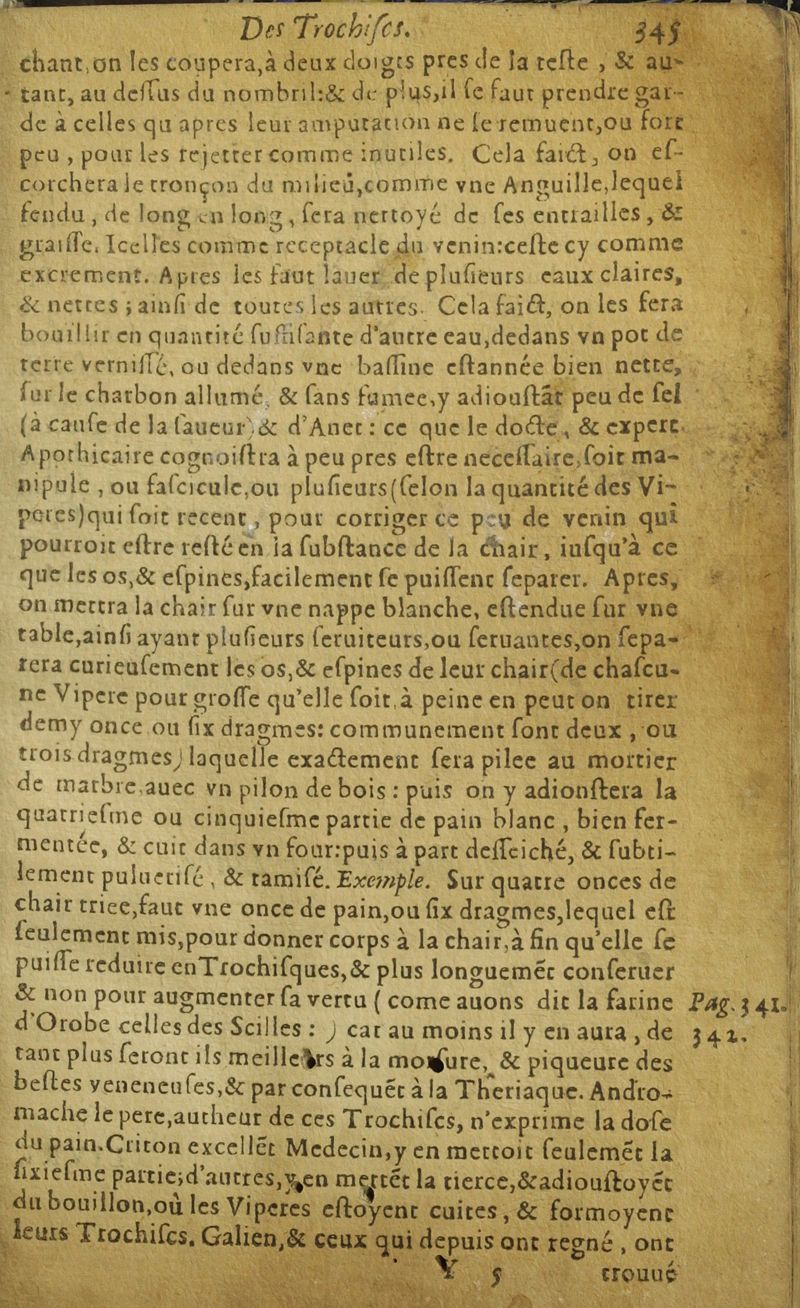 Des Trochiſcs. 345
chant, on les coupera, à deux doigts pres de la teſte , & au-
tant, au deſſus du nombril: & de plus, il ſe faut prendre gar-
de à celles qui apres leur amputation ne ſe remuent, ou fort
peu , pour les rejetter comme inutiles. Cela faict, on eſ-
corchera le tronçon du milieu, comme vne Anguille, lequel
fendu , de long en long , ſera nettoyé de ſes entrailles , &
graiſſe. Icelles comme receptacle du venin: ceſte cy comme
excrement. Apres les faut lauer de pluſieurs eaux claires,
& nettes ; ainſi de toutes les autres. Cela faict, on les fera
bouillir en quantité ſuffiſante d'autre eau, dedans vn pot de
terre verniſſé, ou dedans vne baſſine eſtannée bien nette,
ſur le charbon allumé, & ſans fumee, y adiouſtāt peu de ſel
(à cauſe de la ſaueur) & d'Anet : ce que le docte , & expert
Apothicaire cognoiſtra à peu pres eſtre neceſſaire, ſoit ma-
nipule , ou faſcicule, ou pluſieurs (ſelon la quantité des Vi-
peres) qui ſoit recent , pour corriger ce peu de venin qui
pourroit eſtre reſté en la ſubſtance de la chair , iuſqu'à ce
que les os, & eſpines, facilement ſe puiſſent ſeparer. Apres,
on mettra la chair ſur vne nappe blanche, eſtendue ſur vne
table, ainſi ayant pluſieurs ſeruiteurs, ou ſeruantes, on ſepa-
rera curieuſement les os, & eſpines de leur chair (de chaſcu-
ne Vipere pour groſſe qu'elle ſoit, à peine en peut on tirer
demy once ou ſix dragmes: communement ſont deux , ou
trois dragmes) laquelle exactement ſera pilee au mortier
de marbre, auec vn pilon de bois : puis on y adionſtera la
quatrieſme ou cinquieſme partie de pain blanc , bien fer-
mentée, & cuit dans vn four: puis à part deſſeiché, & ſubti-
lement puluerifé , & tamiſé. Exemple. Sur quatre onces de
chair triee, faut vne once de pain, ou ſix dragmes, lequel eſt
ſeulement mis, pour donner corps à la chair, à fin qu'elle ſe
puiſſe reduire en Trochiſques, & plus longuemēt conſeruer
& non pour augmenter ſa vertu ( come auons dit la farine Pag. 341.
d'Orobe celles des Scilles : ) car au moins il y en aura , de 342.
tant plus ſeront ils meilleurs à la morſure, & piqueure des
beſtes veneneuſes, & par conſequēt à la Theriaque. Andro-
mache le pere, autheur de ces Trochiſcs, n'exprime la doſe
du pain. Criton excellēt Medecin, y en mettoit ſeulemēt la
ſixieſme partie; d'autres, y en mettēt la tierce, & adiouſtoyēt
du bouillon, où les Viperes eſtoyent cuites , & formoyent
leurs Trochiſcs. Galien, & ceux qui depuis ont regné , ont
Y 5 trouué